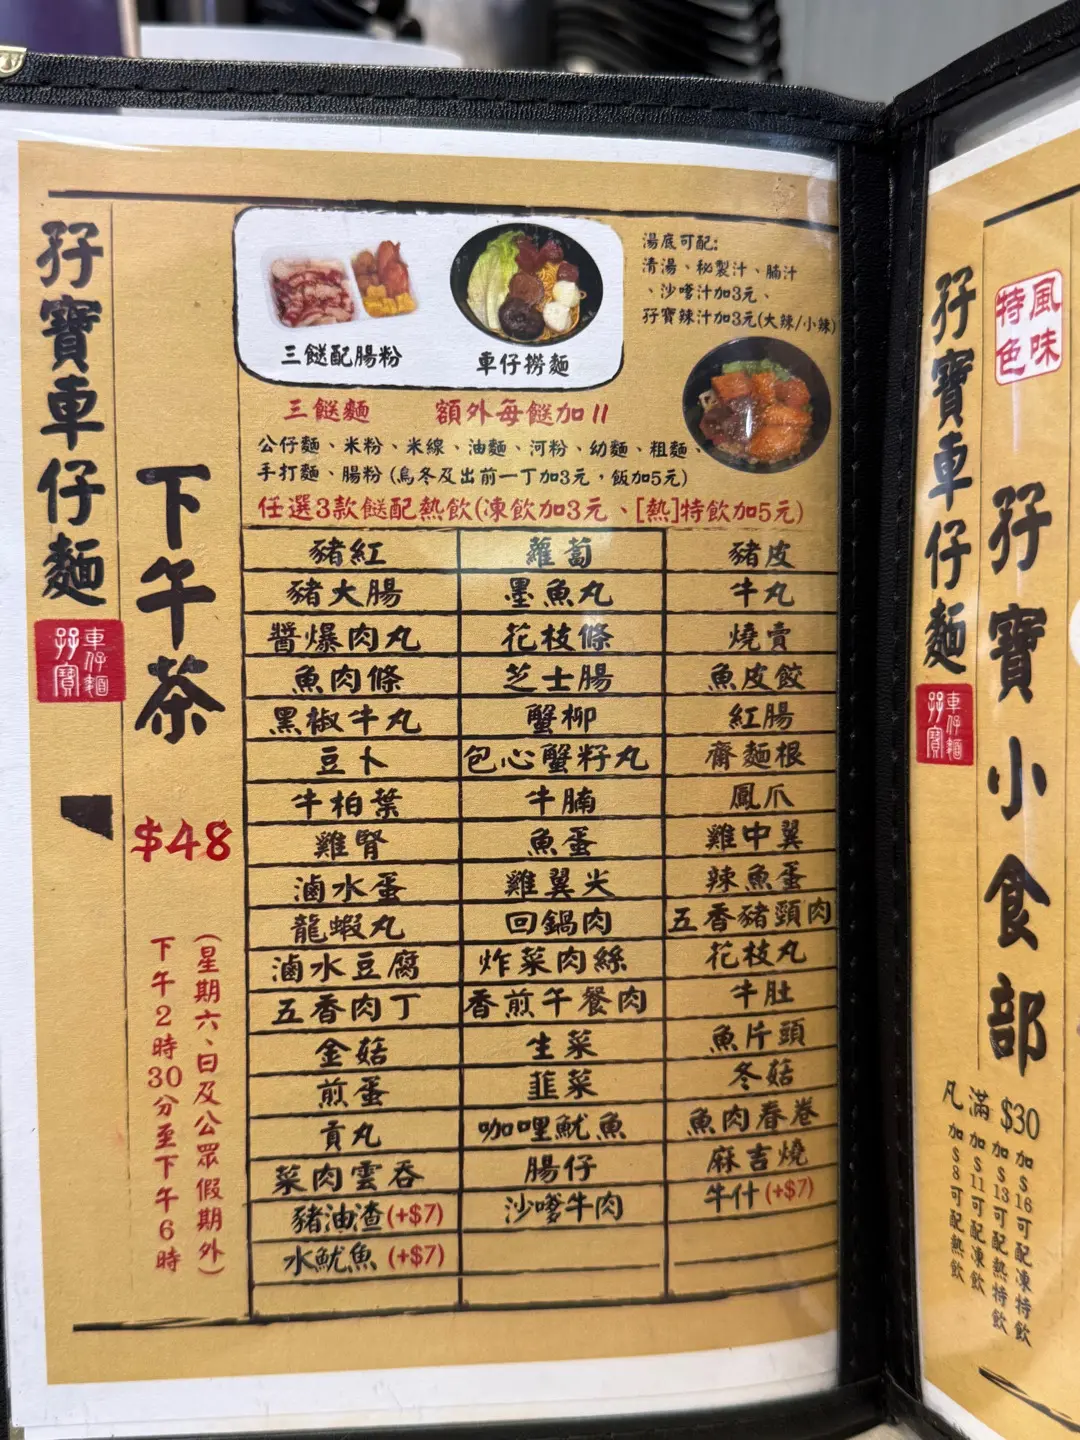 孖寶車仔麵
孖寶
車仔麵
下午茶
$48
(星期六、日及公眾假期外)
下午2時30分至下午6時
三餸配腸粉
車仔撈麵
湯底可配:
清湯、秘製汁、腩汁
、沙嗲汁加3元、
孖寶辣汁加3元(大辣/小辣)
三餸麵 額外每餸加11
公仔麵、米粉、米線、油麵、河粉、幼麵、粗麵、
手打麵、腸粉 (烏冬及出前一丁加3元，飯加5元)
任選3款餸配熱飲(凍飲加3元、[熱]特飲加5元)
豬紅 蘿蔔 豬皮
豬大腸 墨魚丸 牛丸
醬爆肉丸 花枝條 燒賣
魚肉條 芝士腸 魚皮餃
黑椒牛丸 蟹柳 紅腸
豆卜 包心蟹籽丸 齋麵根
牛柏葉 牛腩 鳳爪
雞腎 魚蛋 雞中翼
滷水蛋 雞翼尖 辣魚蛋
龍蝦丸 回鍋肉 五香豬頸肉
滷水豆腐 炸菜肉絲 花枝丸
五香肉丁 香煎午餐肉 牛肚
金菇 生菜 魚片頭
煎蛋 韮菜 冬菇
貢丸 咖哩魷魚 魚肉春卷
菜肉雲吞 腸仔 麻吉燒
豬油渣(+$7) 沙嗲牛肉 牛什(+$7)
水魷魚 (+$7)
孖寶車仔麵
孖寶
車仔麵
風味
特色
孖寶小食部
凡滿 $30
加$16可配凍特飲
加$13可配熱特飲
加$11可配凍飲
加$8可配熱飲